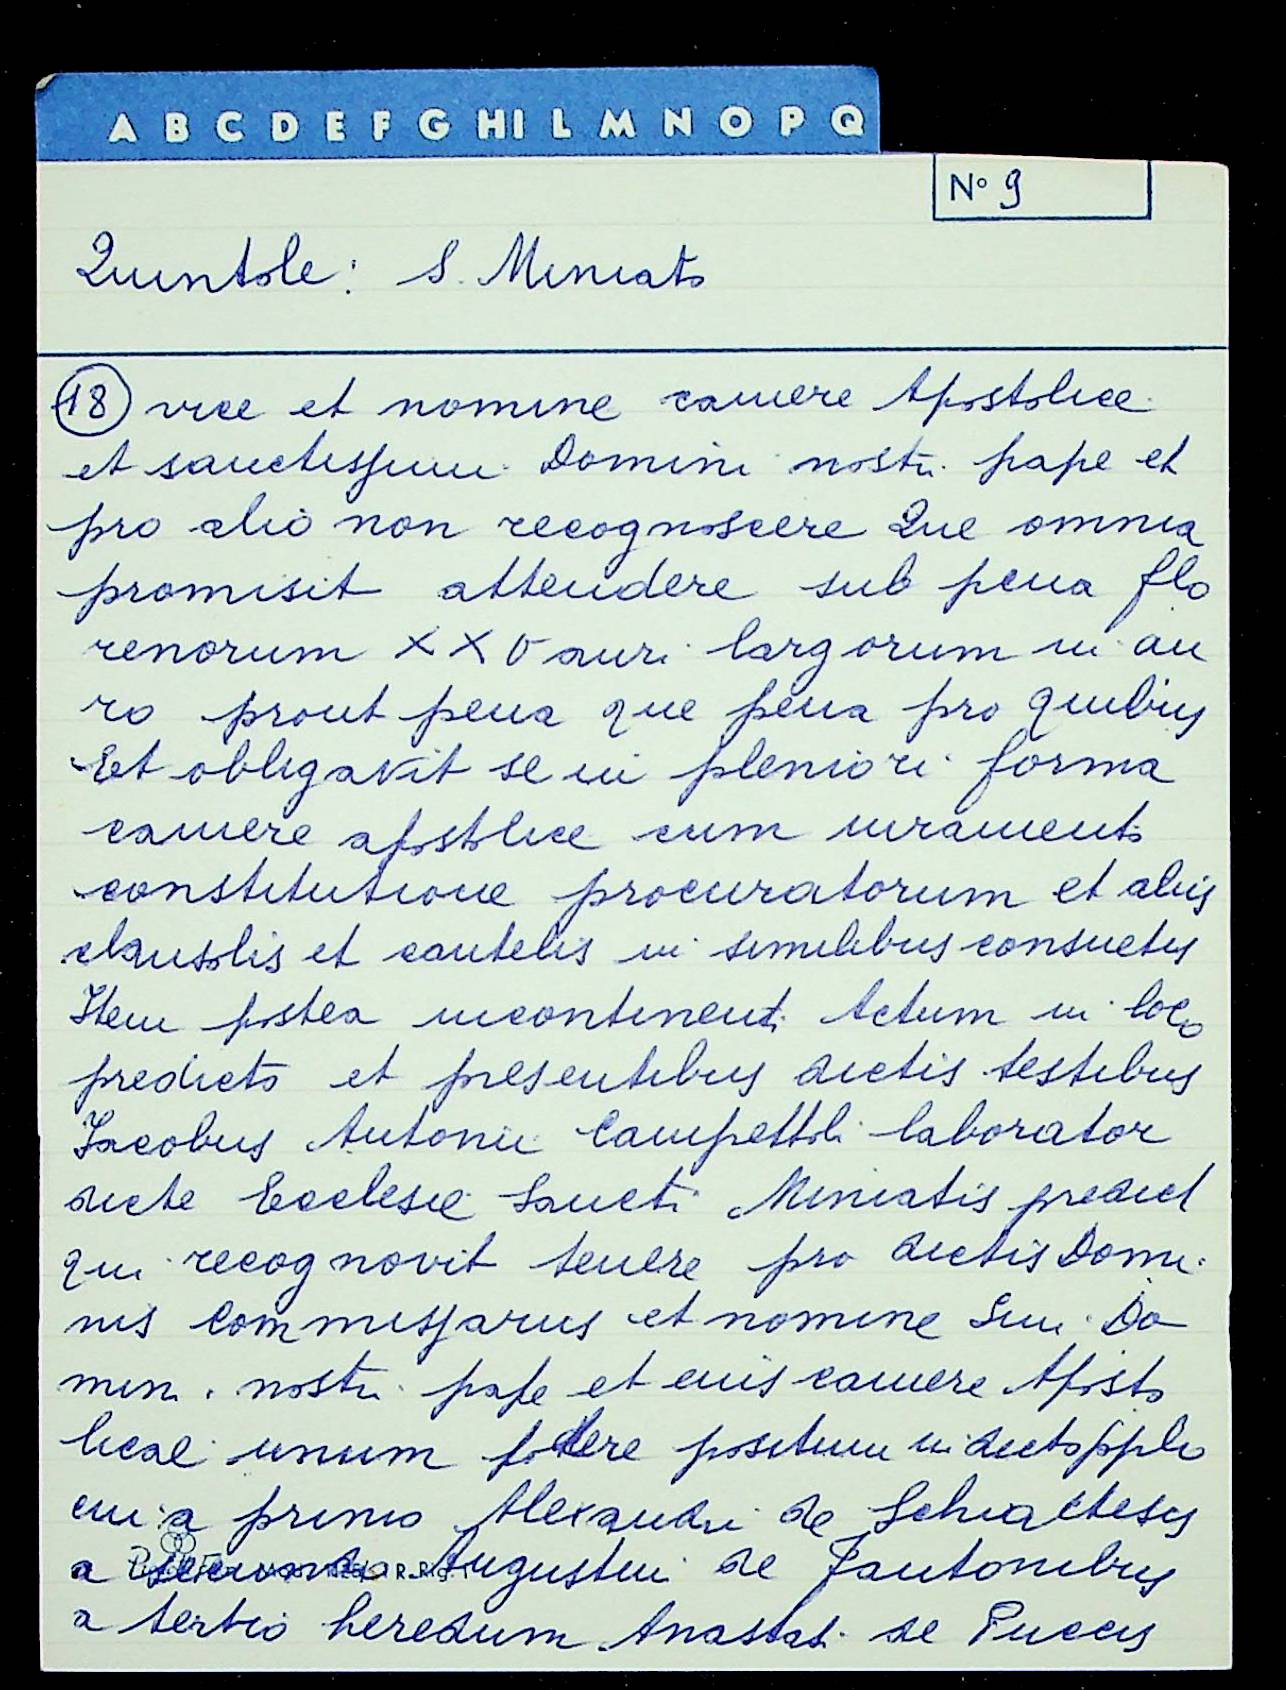 A B C D E F G HI L M N O P Q
N° 9
Quintole: S. Miniato
18 vice et nomine camere Apostolice
et sanctissimi Domini nostri pape et
pro alio non recognoscere Que omnia
promisit attendere sub pena flo
renorum XXV auri largorum in au
ro prout pena que pena pro quibus
Et obligavit se in pleniori forma
camere apostolice cum iuramento
constitutione procuratorum et aliis
clausolis et cautelis in similibus consuetis
Item postea incontinenti Actum in loco
predicto et presentibus dictis testibus
Iacobus Antonii Campettoli laborator
dicte Ecclesie Sancti Miniatis predict
qui recognovit tenere pro dictis Domi
nis Commissariis et nomine Smi Do
mini nostri pape et eius camere Aposto
licae unum podere positum in dicto pplo
cui a primo Alexandri de Schiattesis
a secundo Augustini de Fantonibus
a tertio heredum Anastasi de Puccis